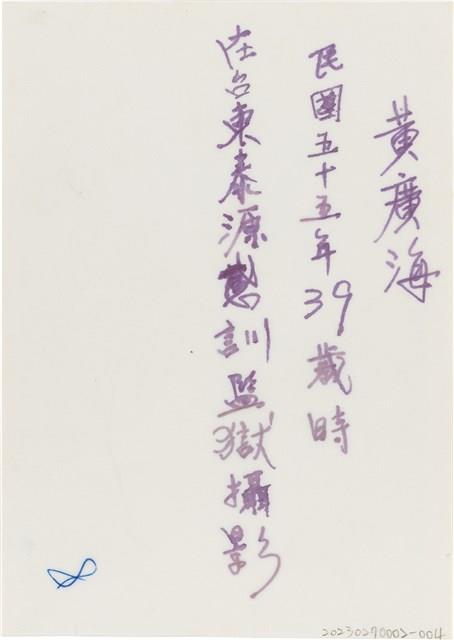 黃廣海
民國五十五年39歲時
在台東泰源感訓監獄攝影
20230270007-004